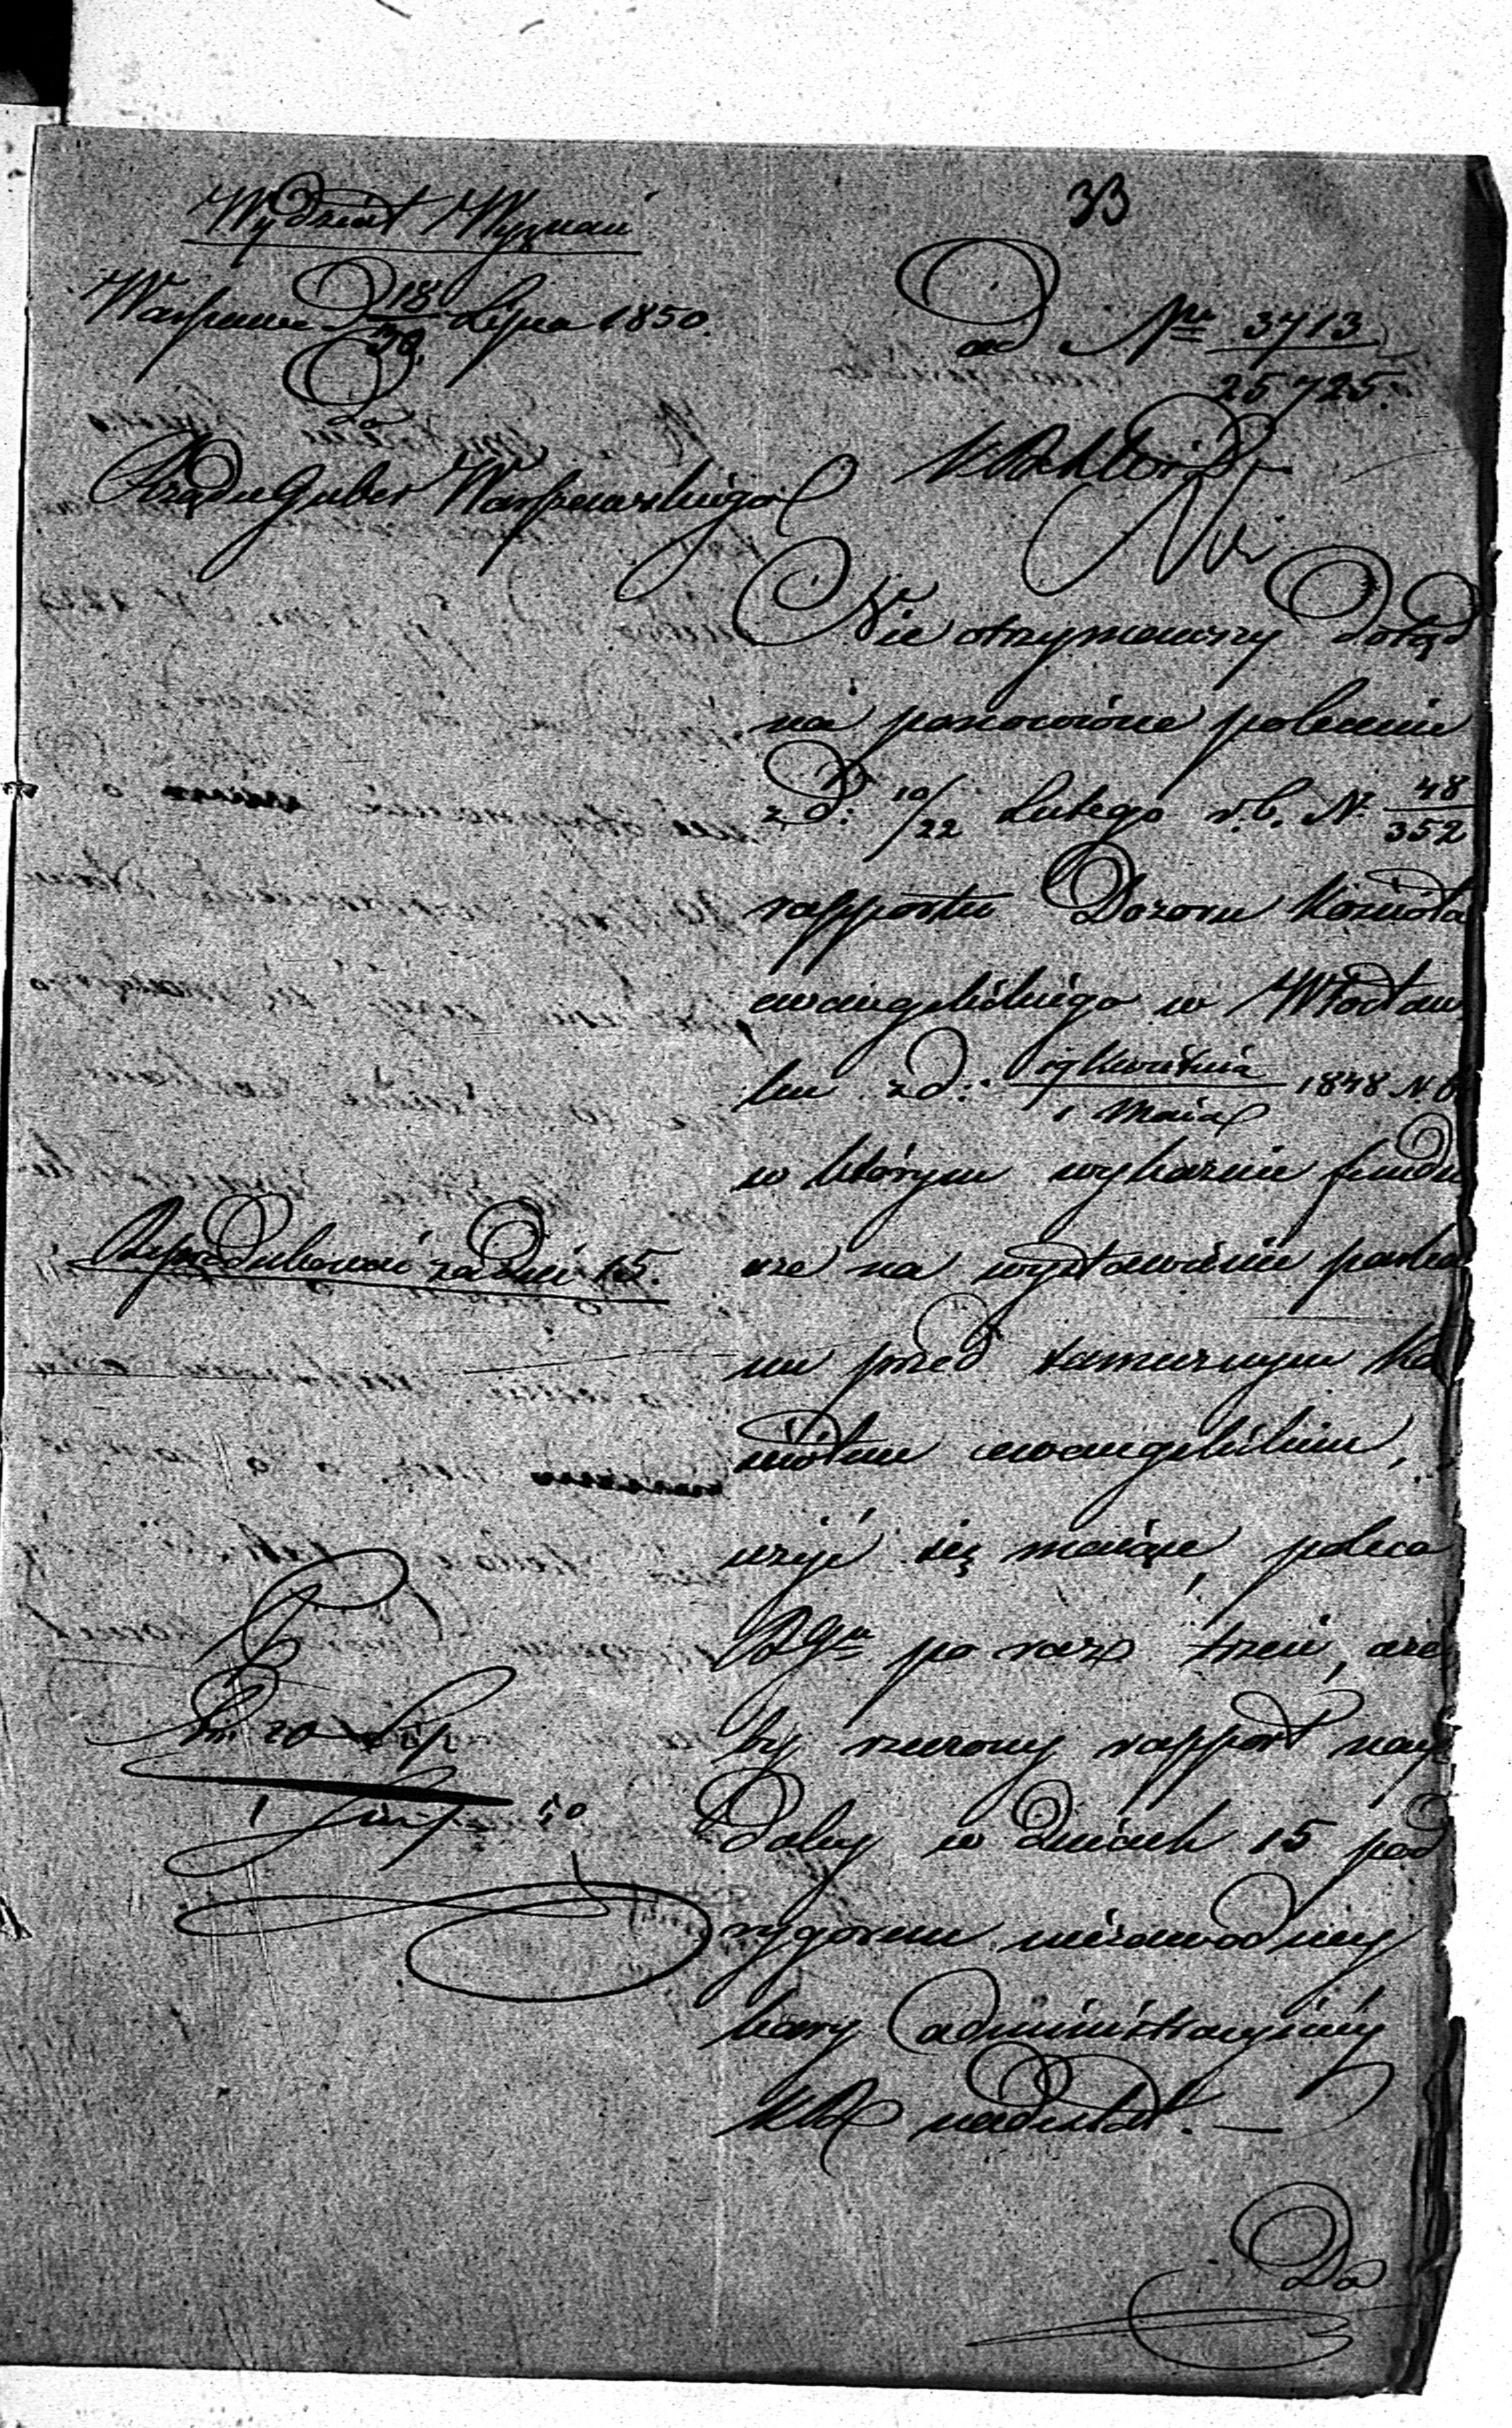 33
Wydział Wyznań
Warszawa d 18/30 Lipca 1850.
Do
Rządu Guber Warszawskiego
ad Nr 3713/25725.
Nie otrzymawszy dotąd
na ponowione polecenie
z d: 10/22 Lutego r.b. N. 48/352
rapportu Dozoru Kościoła
ewangelickiego w Włocław
ku z d: 19 Kwietnia/1 Maia 1848 N. 6
w którym wykaznie fundu
sze na wystawienie parka
nu przed tamecznym Ko
ściołem ewangelickim,
użyć się maiące, poleca
RGu po raz trzeci, aże
by rzeczony rapport nay
daley w dniach 15 pod
rygorem niezawodney
kary administracyiney
KR nadesłał. —
Reprodukować za dni 15.
20 Lip
1 50
Do